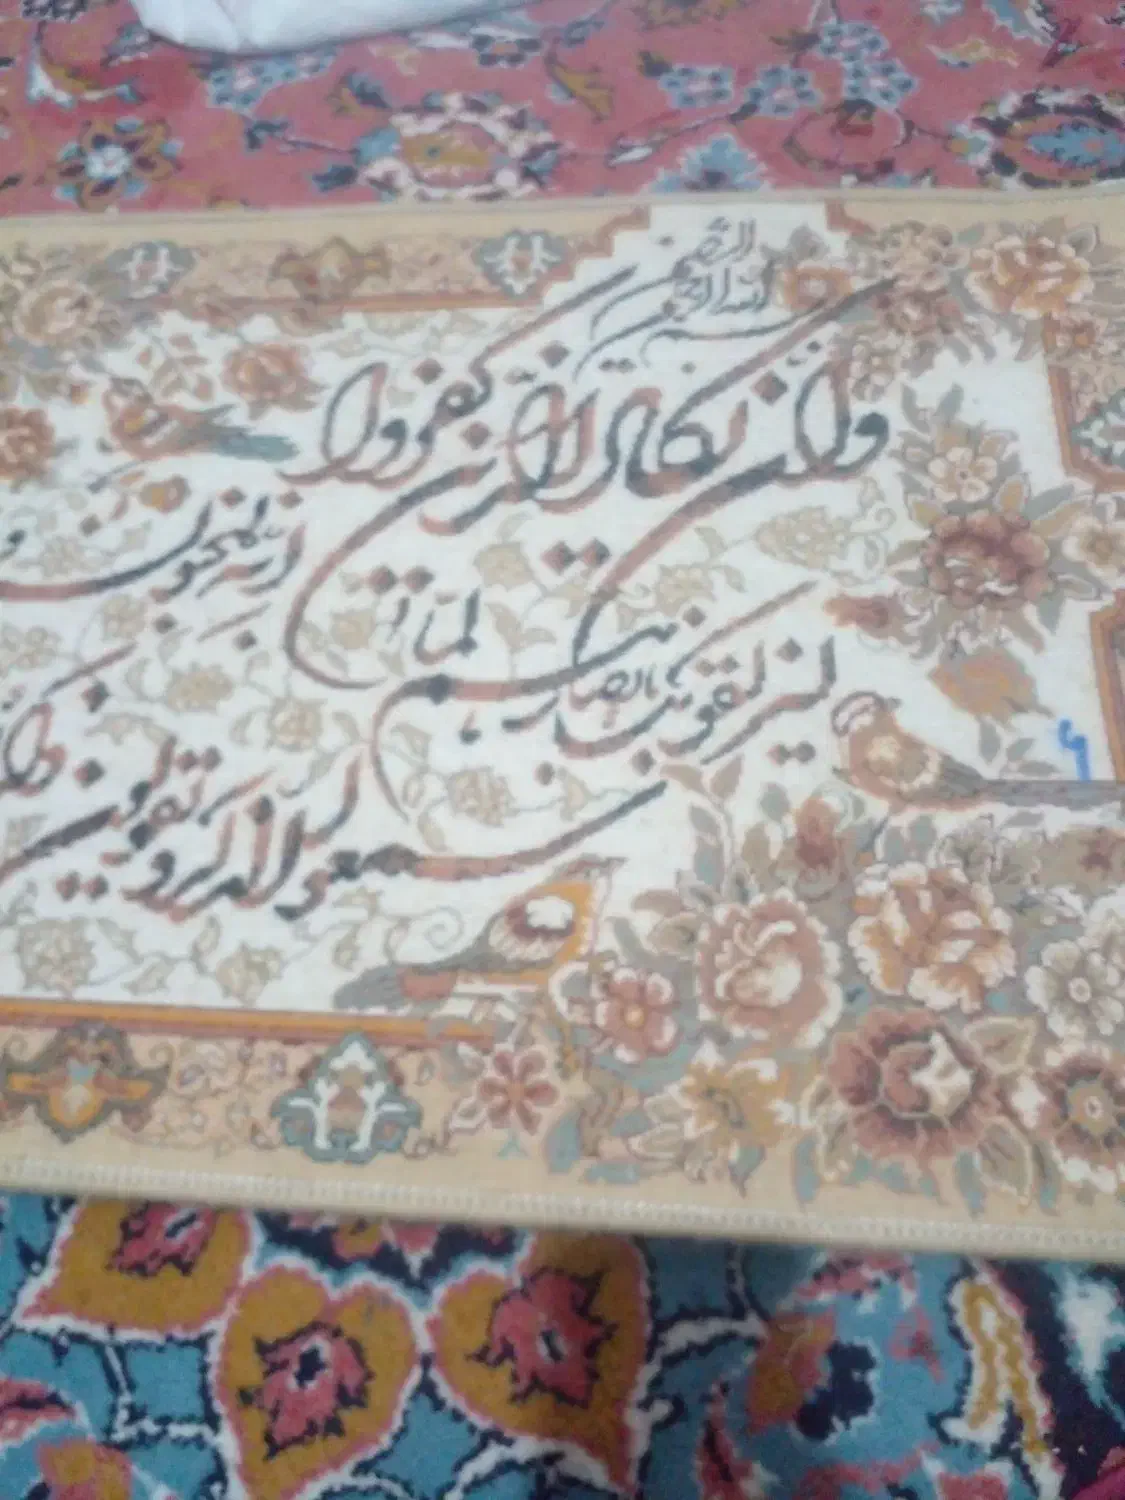 بسم الله الرحمن الرحیم
وان یکاد الذین کفروا
لیزلقونک بابصارهم لما
سمعوا الذکر و یقولون
انه لمجنون و